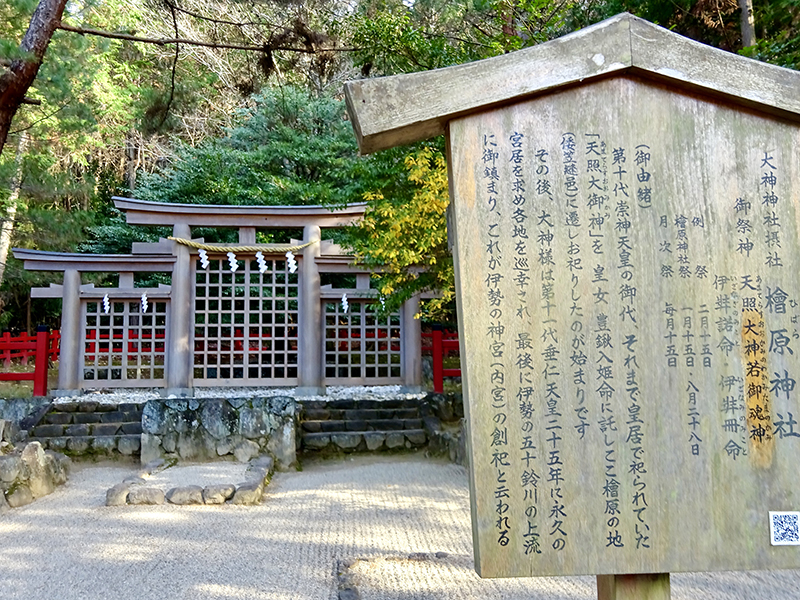 大神神社摂社 檜原神社
ひばら
御祭神 天照大神若御魂神
あまてらすおおかみのわかみたまのかみ
伊弉諾命 伊弉冊命
いざなぎのみこと いざなみのみこと
例祭 二月十五日
檜原神社祭 一月十五日・八月二十八日
月次祭 毎月十五日
(御由緒)
第十代崇神天皇の御代、それまで皇居で祀られていた
「天照大御神」を 皇女 豊鍬入姫命に託しここ檜原の地
あまてらすおおみかみ
(倭笠縫邑)に遷しお祀りしたのが始まりです
その後、大神様は第十一代垂仁天皇二十五年に永久の
宮居を求め各地を巡幸され、最後に伊勢の五十鈴川の上流
に御鎮まり、これが伊勢の神宮(内宮)の創祀と云われる